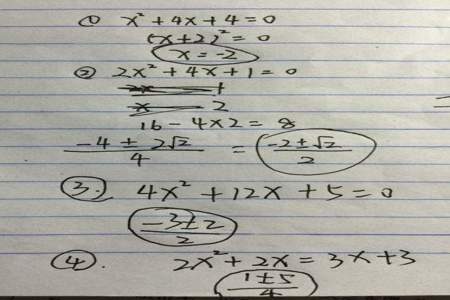 ① x² + 4x + 4 = 0
(x+2)² = 0
x = -2
② 2x² + 4x + 1 = 0
2x 1
x 2
16 - 4×2 = 8
(-4 ± 2√2)/4 = (-2 ± √2)/2
③. 4x² + 12x + 5 = 0
(-3±2)/2
④. 2x² + 2x = 3x + 3
(1±5)/4